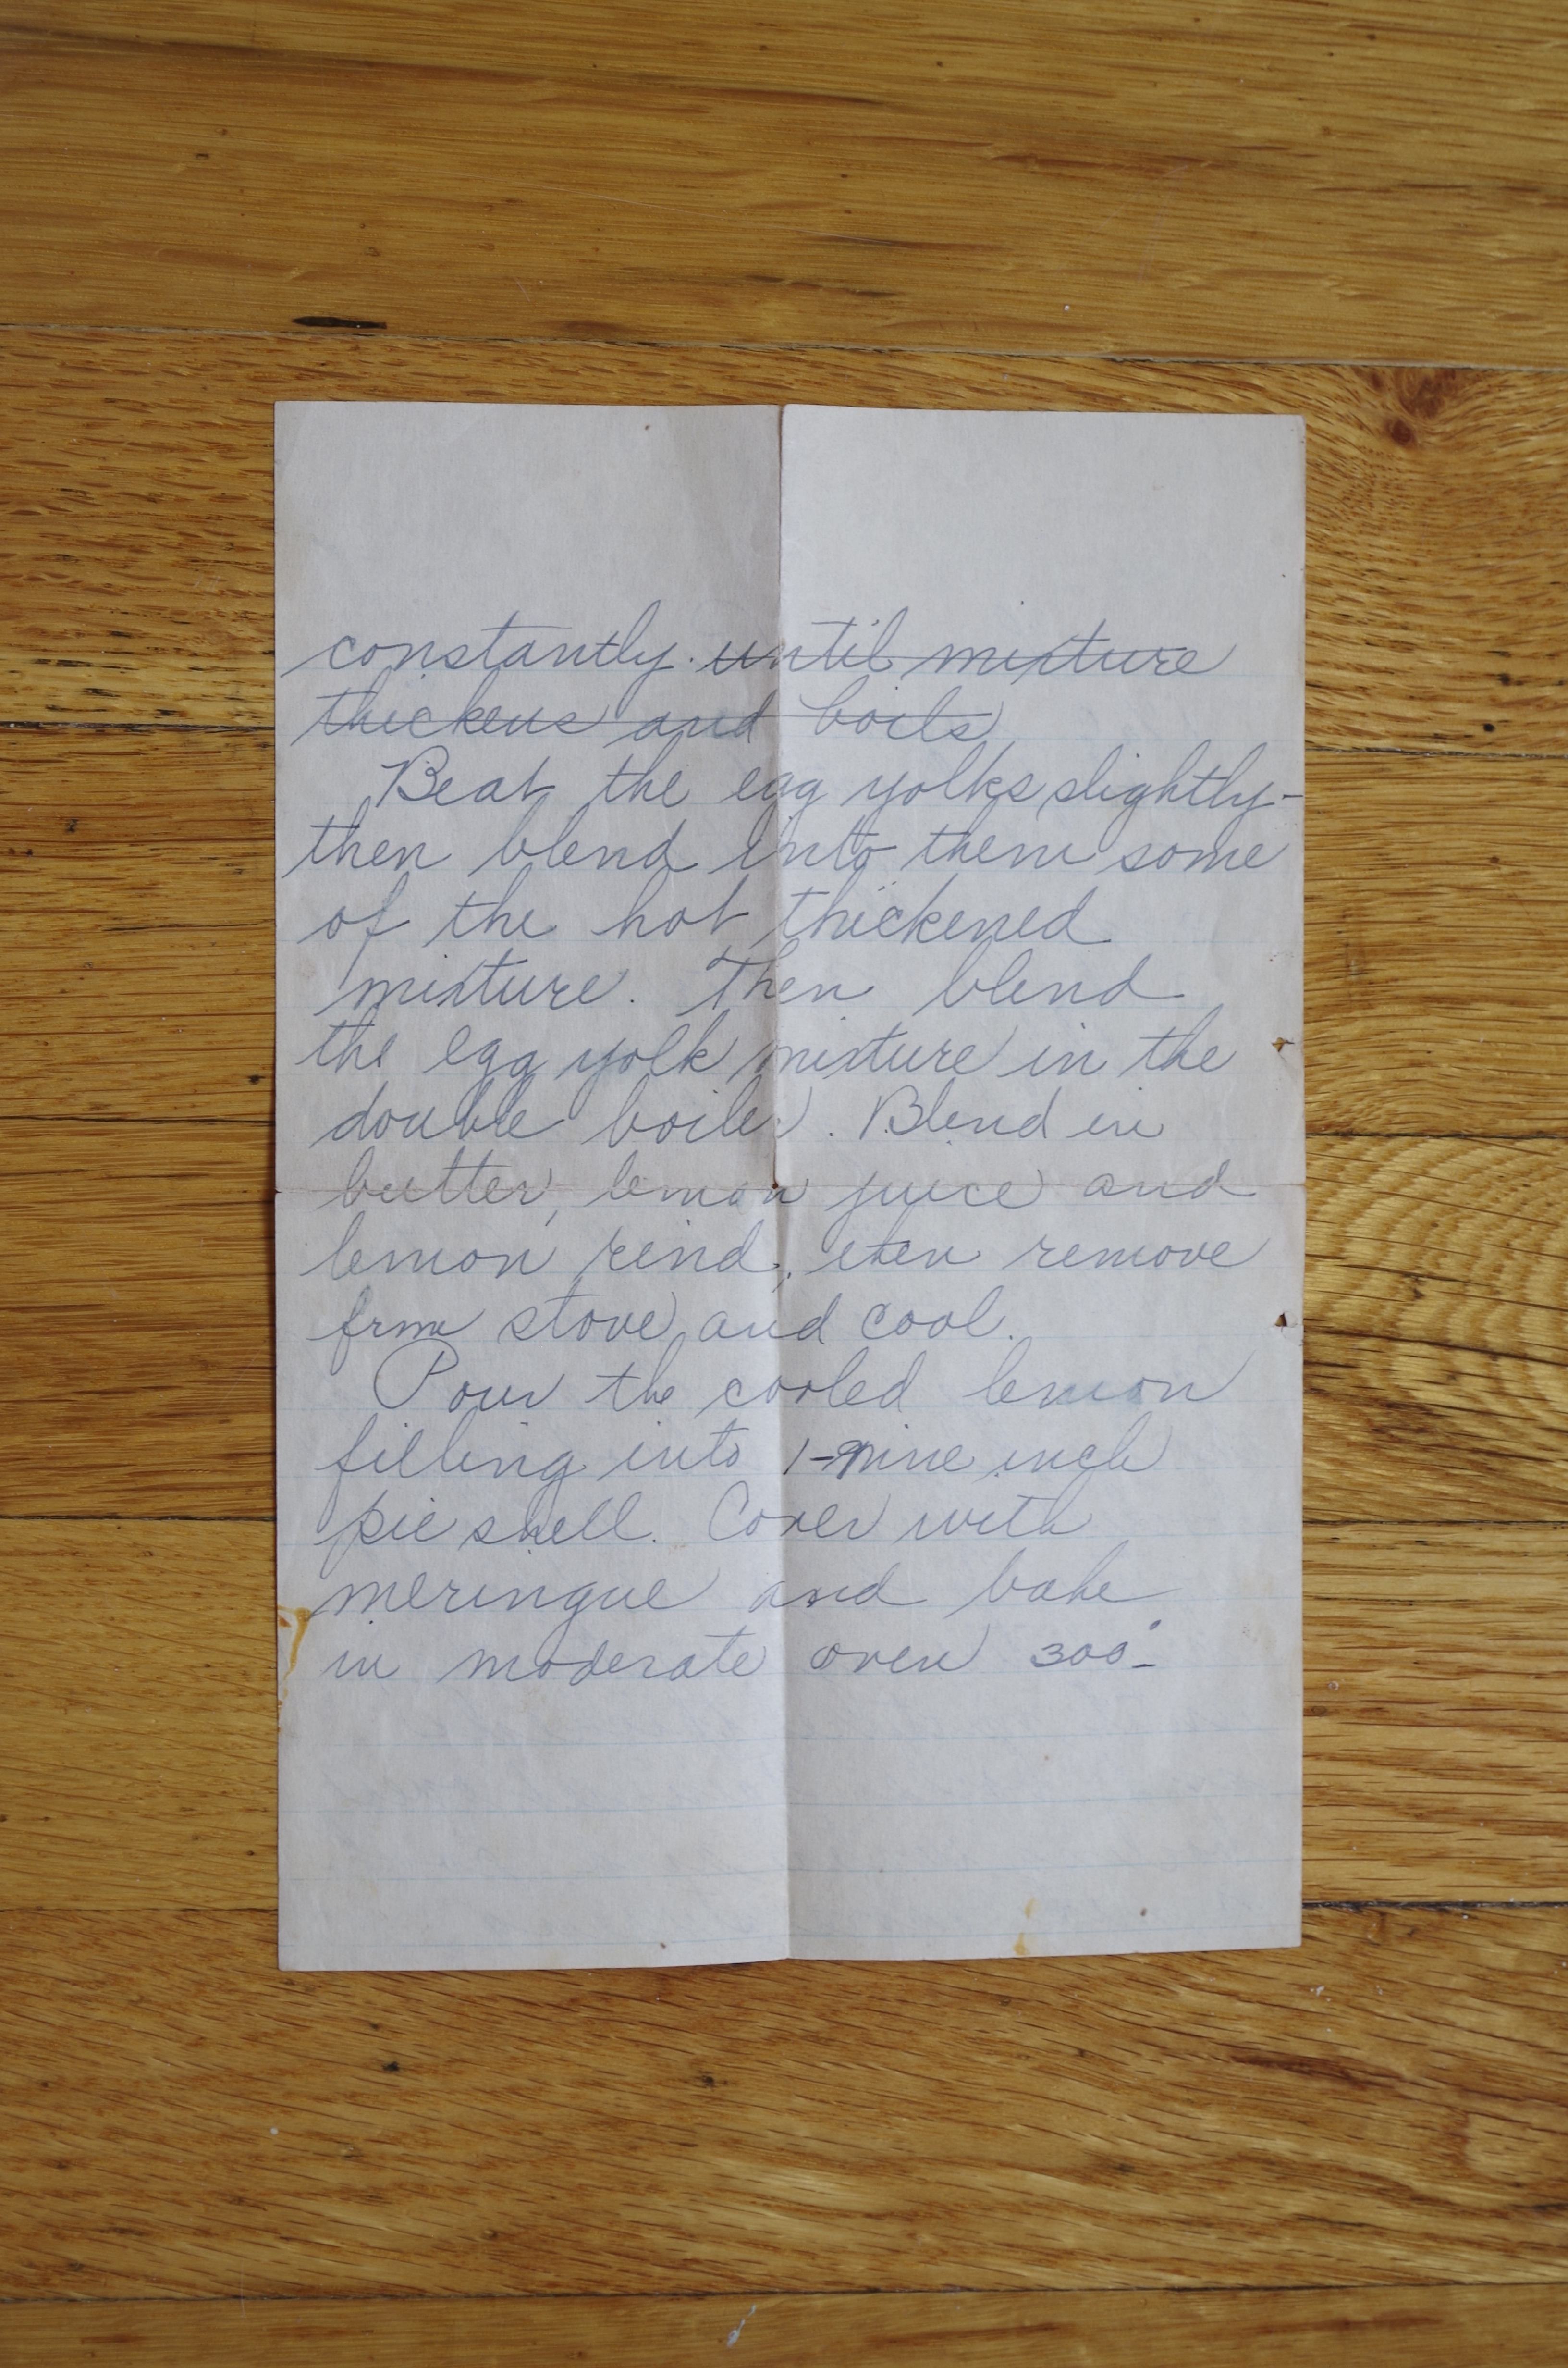 constantly. until mixture
thickens and boils
Beat the egg yolks slightly-
then blend into them some
of the hot thickened
mixture. Then blend
the egg yolk mixture in the
double boiler. Blend in
butter, lemon juice and
lemon rind, then remove
from stove and cool.
Pour the cooled lemon
filling into 1-nine inch
pie shell. Cover with
meringue and bake
in moderate oven 300°-